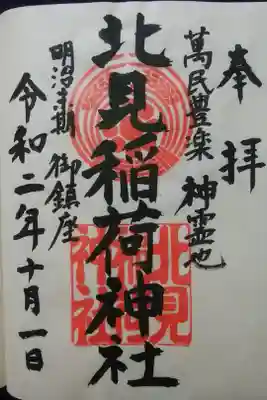 奉拝
萬民豊楽 神霊也
北見稲荷神社
御鎮座
令和二年十月一日
北見
神社